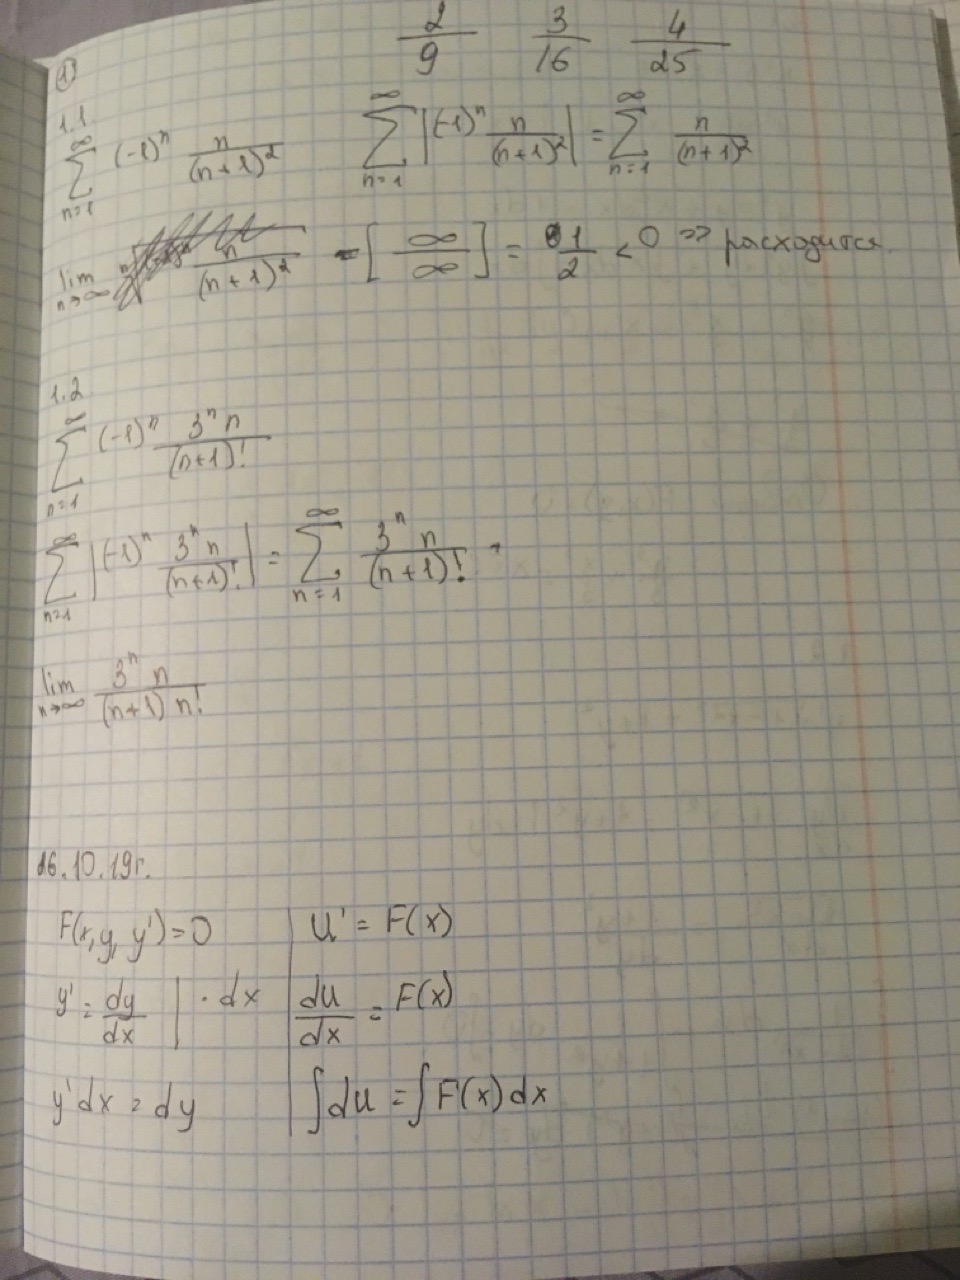 2/9 3/16 4/25
①
1.1
∑_{n=1}^{∞} (-1)^n n/(n+1)^2 ∑_{n=1}^{∞} |(-1)^n n/(n+1)^2| = ∑_{n=1}^{∞} n/(n+1)^2
lim_{n→∞} n/(n+1)^2 = [∞/∞] = 1/2 < 0 => расходится.
1.2
∑_{n=1}^{∞} (-1)^n 3^n n/(n+1)!
∑_{n=1}^{∞} |(-1)^n 3^n n/(n+1)!| = ∑_{n=1}^{∞} 3^n n/(n+1)!
lim_{n→∞} 3^n n/(n+1) n!
16.10.19г.
F(x,y,y')=0 | u' = F(x)
y' = dy/dx | · dx | du/dx = F(x)
y'dx = dy | ∫du = ∫F(x)dx